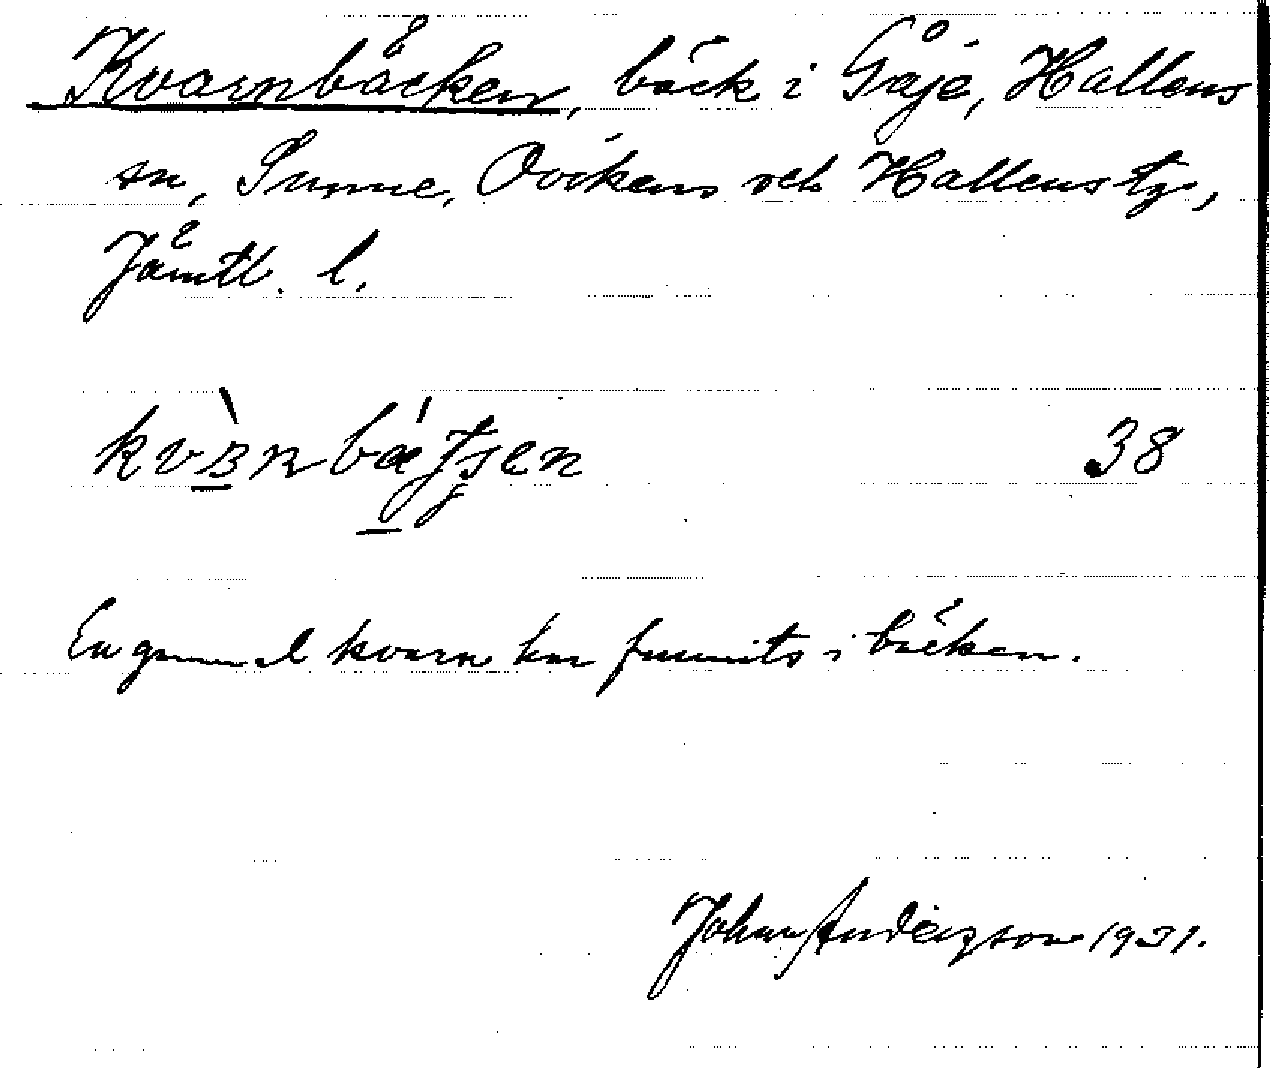 Kvarnbäcken, bäck i Gåje, Hallens
sn, Sunne, Ovikens och Hallens tg,
Jämtl. l.
38
En gammal kvarn har funnits i bäcken.
Johan Anderzson 1931.